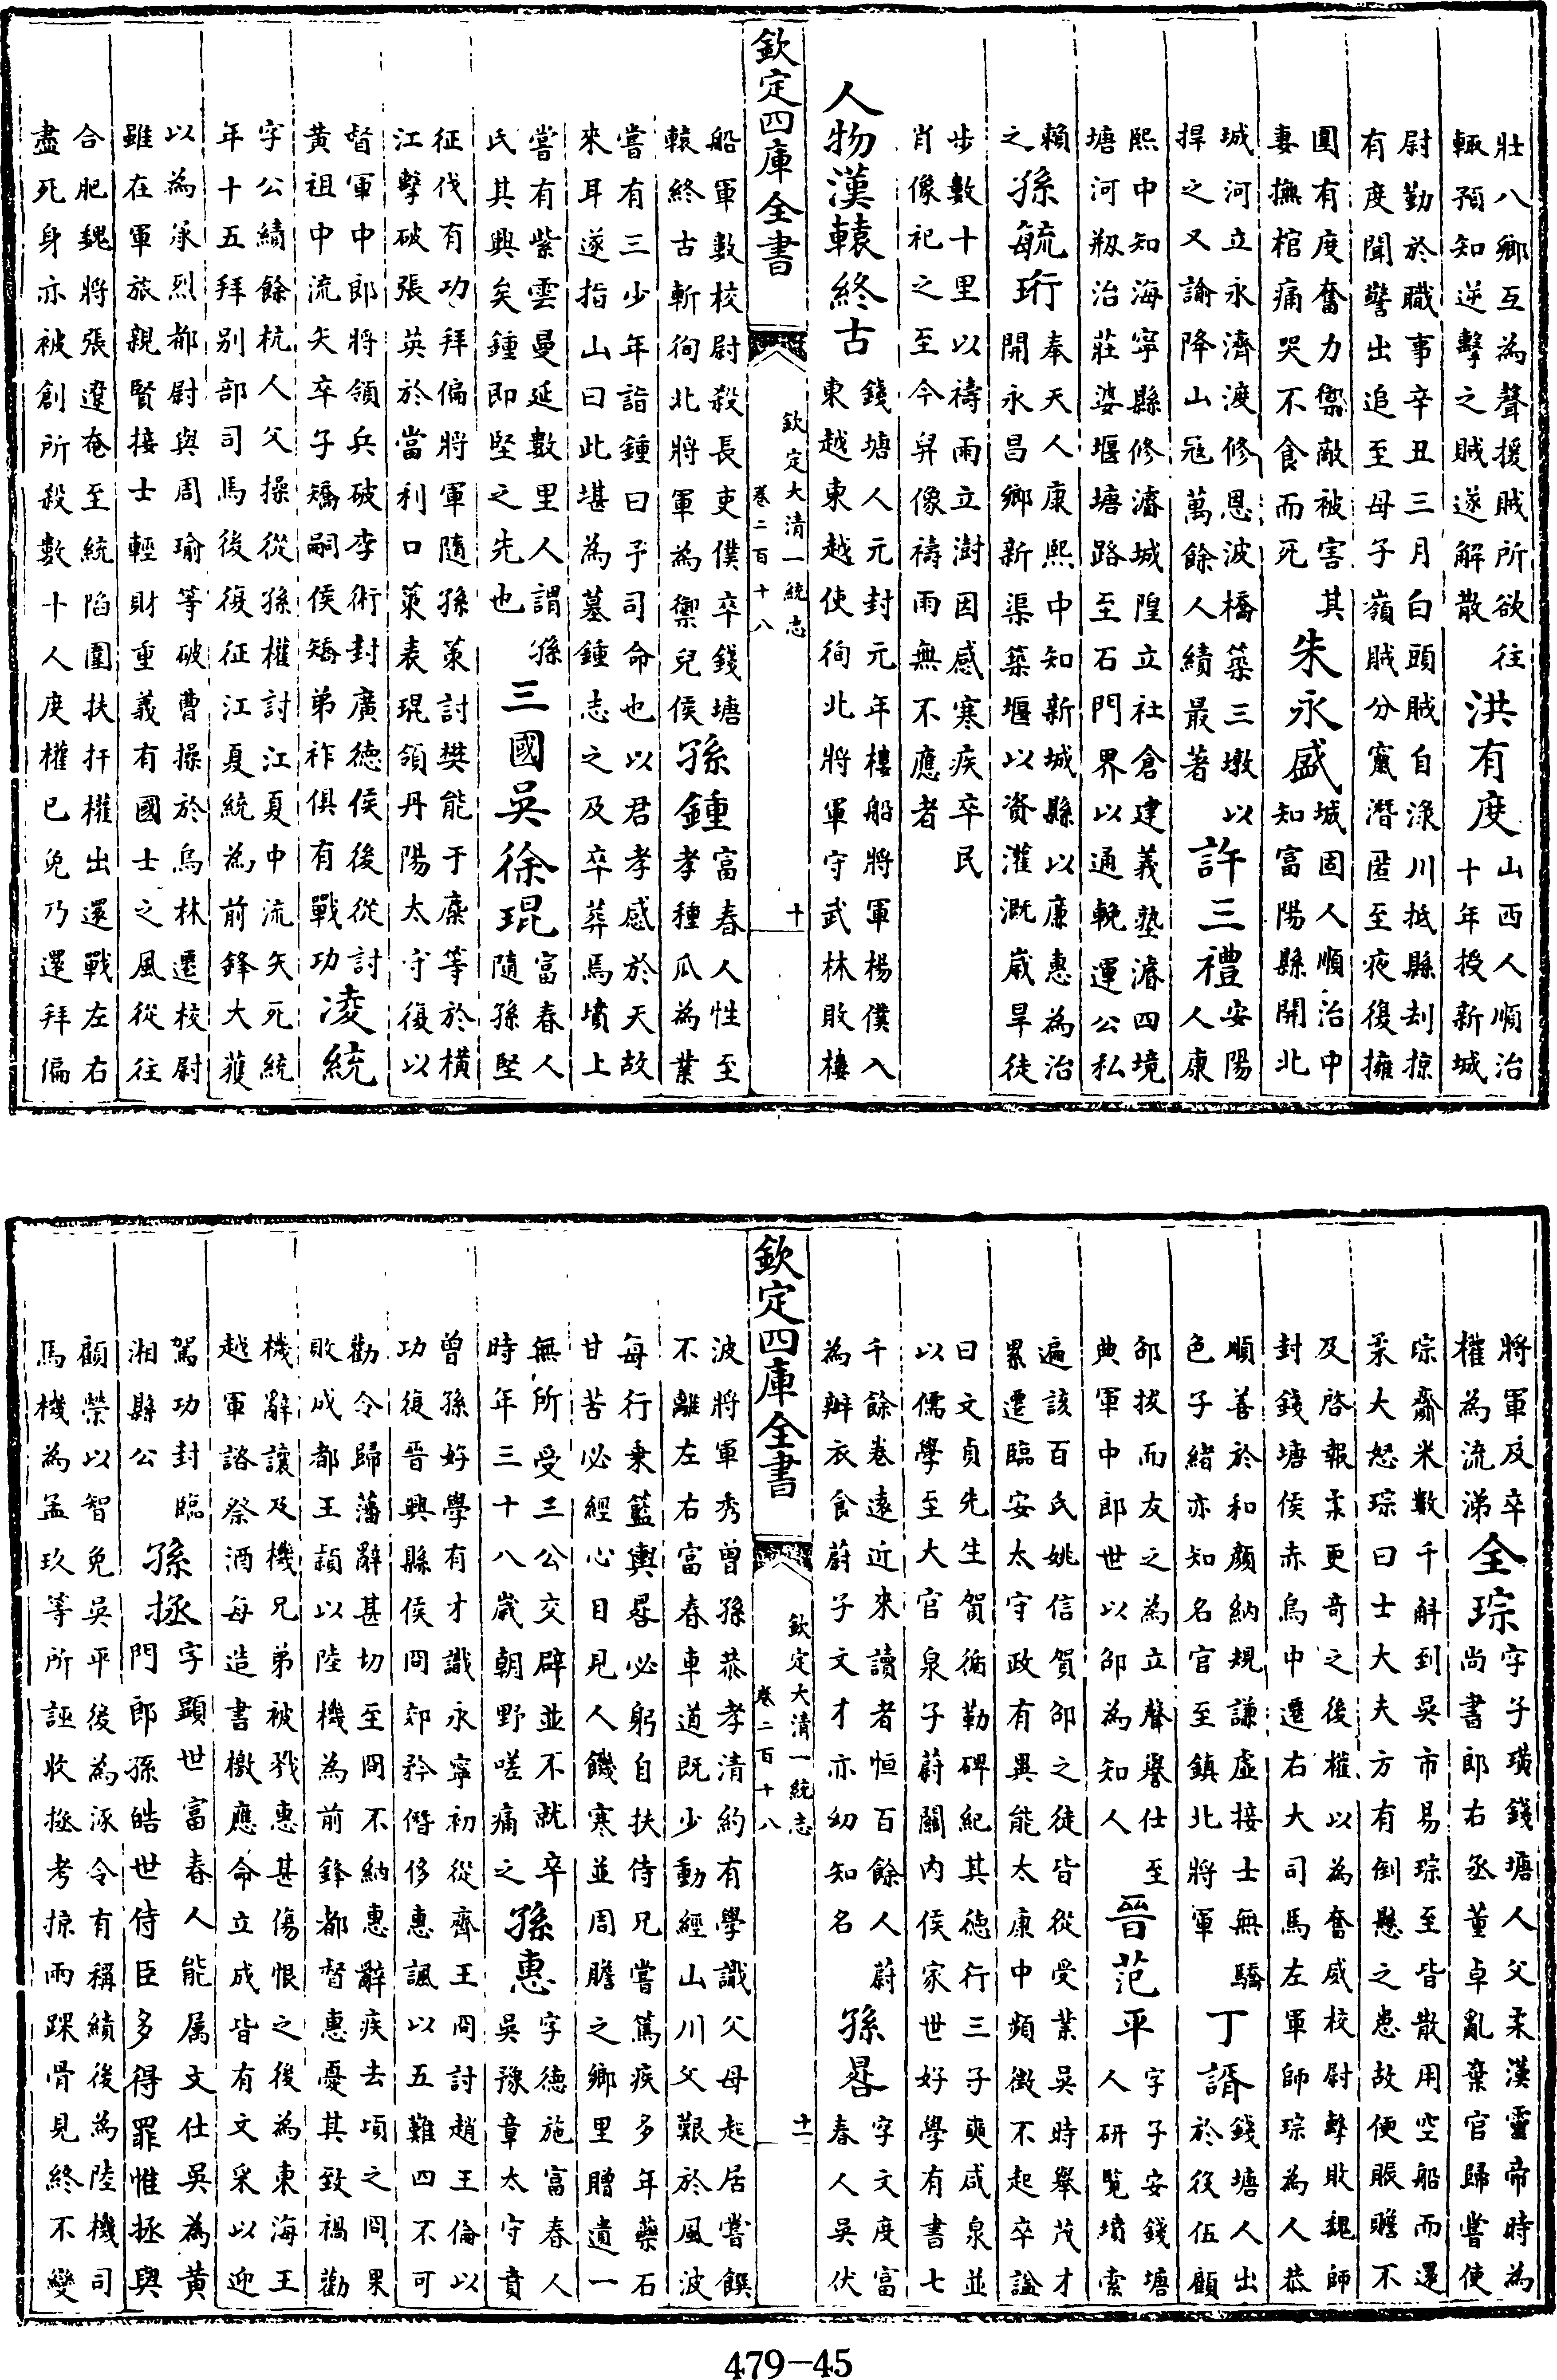 壯八鄉互為聲援賊所欲往
輙預知逆擊之賊遂解散
洪有度
山西人順治
十年授新城
尉勤於職事辛丑三月白頭賊自淥川抵縣刦掠
有度聞警出追至母子嶺賊分竄潛匿至夜復擁
圍有度奮力禦敵被害其
妻撫棺痛哭不食而死
朱永盛
城固人順治中
知富陽縣開北
城河立永濟渡修恩波橋築三墩以
捍之又諭降山冦萬餘人績最著
許三禮
安陽
人康
熙中知海寧縣修濬城隍立社倉建義塾濬四境
塘河剏治莊婆堰塘路至石門界以通輓運公私
賴
之
孫毓珩
奉天人康熙中知新城縣以廉惠為治
開永昌鄉新渠築堰以資灌溉嵗旱徒
步數十里以禱雨立澍因感寒疾卒民
肖像祀之至今舁像禱雨無不應者
人物漢轅終古
錢塘人元封元年樓船將軍楊僕入
東越東越使徇北將軍守武林敗樓
欽定四庫全書
欽定大清一統志
卷二百十八
十
船軍數校尉殺長吏僕卒錢塘
轅終古斬徇北將軍為禦兒侯
孫鍾
富春人性至
孝種瓜為業
嘗有三少年詣鍾曰予司命也以君孝感於天故
來耳遂指山曰此堪為墓鍾志之及卒葬焉墳上
嘗有紫雲曼延數里人謂孫
氏其興矣鍾即堅之先也
三國吳徐琨
富春人
隨孫堅
征伐有功拜偏將軍隨孫策討樊能于糜等於橫
江擊破張英於當利口策表琨領丹陽太守復以
督軍中郎將領兵破李術封廣德侯後從討
黄祖中流矢卒子矯嗣侯矯弟祚俱有戰功
凌統
字公績餘杭人父操從孫權討江夏中流矢死統
年十五拜别部司馬後復征江夏統為前鋒大獲
以為承烈都尉與周瑜等破曹操於烏林遷校尉
雖在軍旅親賢接士輕財重義有國士之風從往
合肥魏將張遼奄至統陷圍扶扞權出還戰左右
盡死身亦被創所殺數十人度權已免乃還拜偏
將軍及卒
權為流涕
全琮
字子璜錢塘人父柔漢靈帝時為
尚書郎右丞董卓亂棄官歸嘗使
琮齎米數千斛到吳市易琮至皆散用空船而還
柔大怒琮曰士大夫方有倒懸之患故便賑贍不
及啓報柔更奇之後權以為奮威校尉擊敗魏師
封錢塘侯赤烏中遷右大司馬左軍師琮為人恭
順善於和顔納規謙虛接士無驕
色子緒亦知名官至鎮北將軍
丁諝
錢塘人出
於役伍顧
邵拔而友之為立聲譽仕至
典軍中郎世以邵為知人
晉范平
字子安錢塘
人研覽墳索
遍該百氏姚信賀邵之徒皆從受業吳時舉茂才
累遷臨安太守政有異能太康中頻徵不起卒諡
曰文貞先生賀循勒碑紀其德行三子奭咸泉並
以儒學至大官泉子蔚關內侯家世好學有書七
千餘卷遠近來讀者恒百餘人蔚
為辦衣食蔚子文才亦幼知名
孫晷
字文度富
春人吳伏
欽定四庫全書
欽定大清一統志
卷二百十八
十一
波將軍秀曾孫恭孝清約有學識父母起居嘗饌
不離左右富春車道既少動經山川父母艱於風波
每行乗籃輿晷必躬自扶侍兄嘗篤疾多年藥石
甘苦必經心目見人饑寒並周贍之鄉里贈遺一
無所受三公交辟並不就卒
時年三十八歲朝野嗟痛之
孫惠
字德施富春人
吳豫章太守賁
曾孫好學有才識永寧初從齊王冏討趙王倫以
功復晉興縣侯冏郊矜僭侈惠諷以五難四不可
勸令歸藩辭甚切至冏不納惠辭疾去頃之冏果
敗成都王穎以陸機為前鋒都督惠憂其致禍勸
機辭讓及機兄弟被戮惠甚傷恨之後為東海王
越軍諮祭酒每造書檄應命立成皆有文采以迎
駕功封臨
湘縣公
孫拯
字顯世富春人能属文仕吳為黄
門郎孫皓世侍臣多得罪惟拯與
顧榮以智免吳平後為涿令有稱績後為陸機司
馬機為孟玖等所誣收拯考掠兩踝骨見終不變
479-45